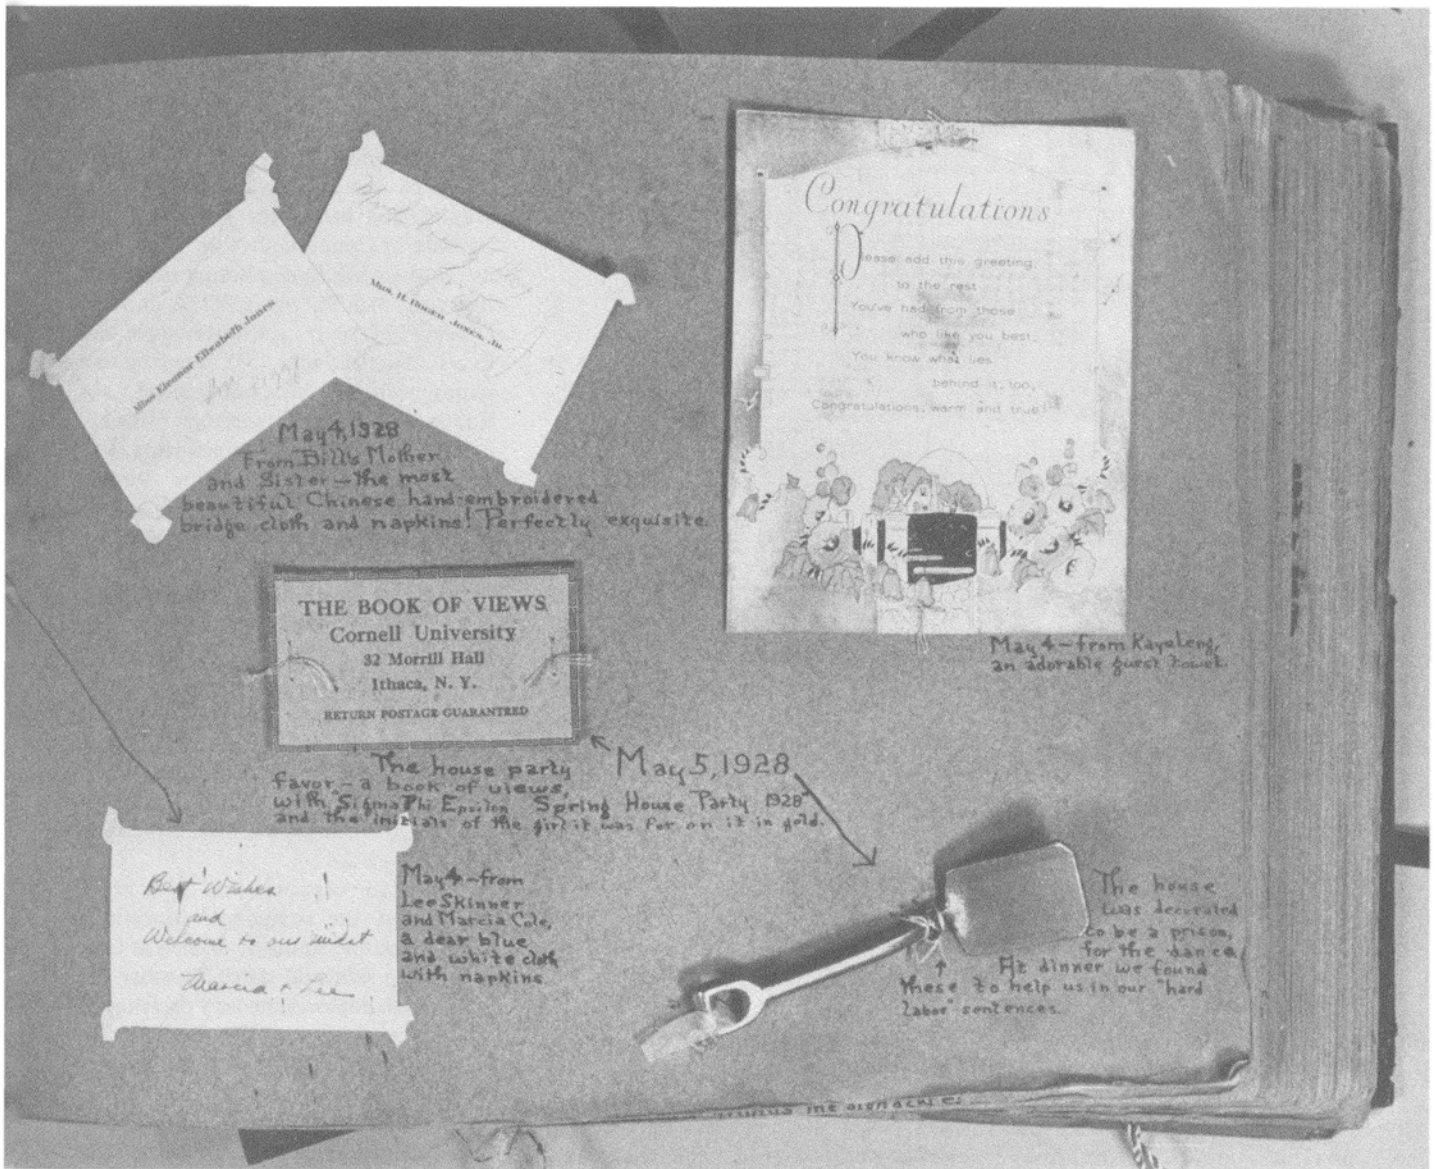 Miss Eleanor Elizabeth Jones
Mrs. H. Jones, Jr.
May 4, 1928
From Bill's Mother
and Sister — the most
beautiful Chinese hand-embroidered
bridge cloth and napkins! Perfectly exquisite.
Congratulations
Please add this greeting
to the rest
You've had from those
who like you best,
You know what lies
behind it, too,
Congratulations, warm and true!
May 4 — from
an adorable guest towel.
THE BOOK OF VIEWS
Cornell University
32 Morrill Hall
Ithaca, N. Y.
RETURN POSTAGE GUARANTEED
May 5, 1928
The house party
favor — a book of views,
with "Sigma Phi Epsilon Spring House Party 1928"
and the initials of the girl it was for on it in gold.
Best Wishes
and
Welcome to our midst
Marcia & Lee
May 4 — from
Lee Skinner
and Marcia Cole,
a dear blue
and white cloth
with napkins
The house
was decorated
to be a prison,
for the dance
At dinner we found
these to help us in our "hard
labor" sentences.
the signature.